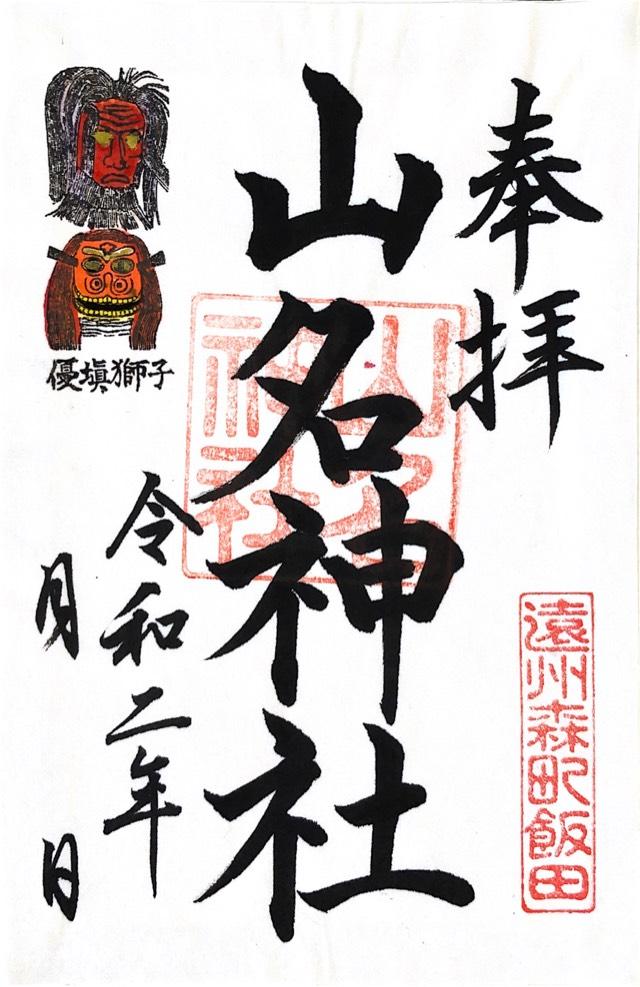 奉拝
遠州森町飯田
山名神社
山名
神社
令和二年
月 日
優塡獅子